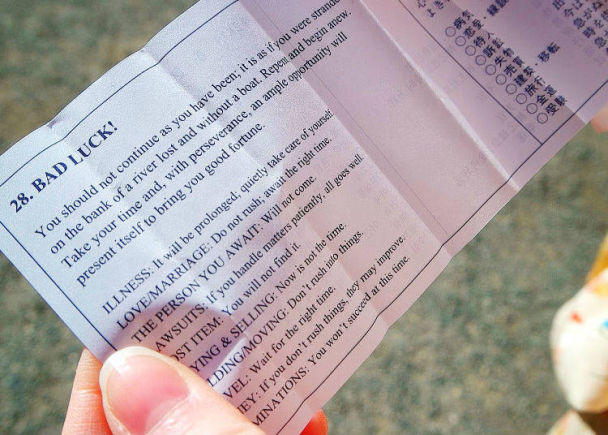 28. BAD LUCK!
You should not continue as you have been; it is as if you were
on the bank of a river lost and without a boat. Repent and begin anew.
Take your time and, with perseverance, an ample opportunity will
present itself to bring you good fortune.
ILLNESS: It will be prolonged; quietly take care of yourself.
LOVE/MARRIAGE: Do not rush; await the right time.
THE PERSON YOU AWAIT: Will not come.
AWSUITS: If you handle matters patiently, all goes well.
OST ITEM: You will not find it.
ING & SELLING: Now is not the time.
LDING/MOVING: Don't rush into things.
VEL: Wait for the right time.
EY: If you don't rush things, they may improve.
MINATIONS: You won't succeed at this time.
○病気
○恋愛・縁談
○待人
○訴訟
○失物
○売買
○建築・移転
○旅行
○金運
○受験